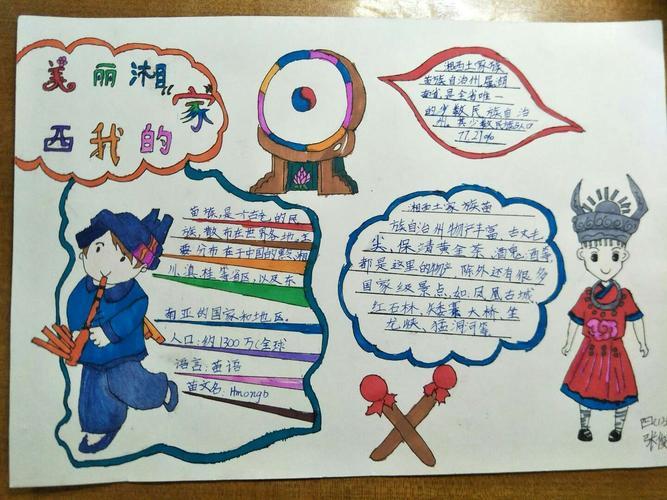 美丽湘
西我的家
湘西土家族
苗族自治州属湖
南也是全省唯一
的少数民族自治
州,其少数民族占人口
77.21%
苗族,是一个古老的民
族,散布在世界各地,主
要分布在于中国的黔,湘
川,滇,桂等省区,以及东
南亚的国家和地区。
人口:约1300万(全球
语言:苗语
苗文名:Hmongb
湘西土家族苗
族自治州物产丰富,古丈毛
尖,保靖黄金茶,酒鬼酒等
都是这里的物产 除外还有很多
国家级景点,如:凤凰古城
红石林,矮寨大桥,坐
龙峡,猛洞河等